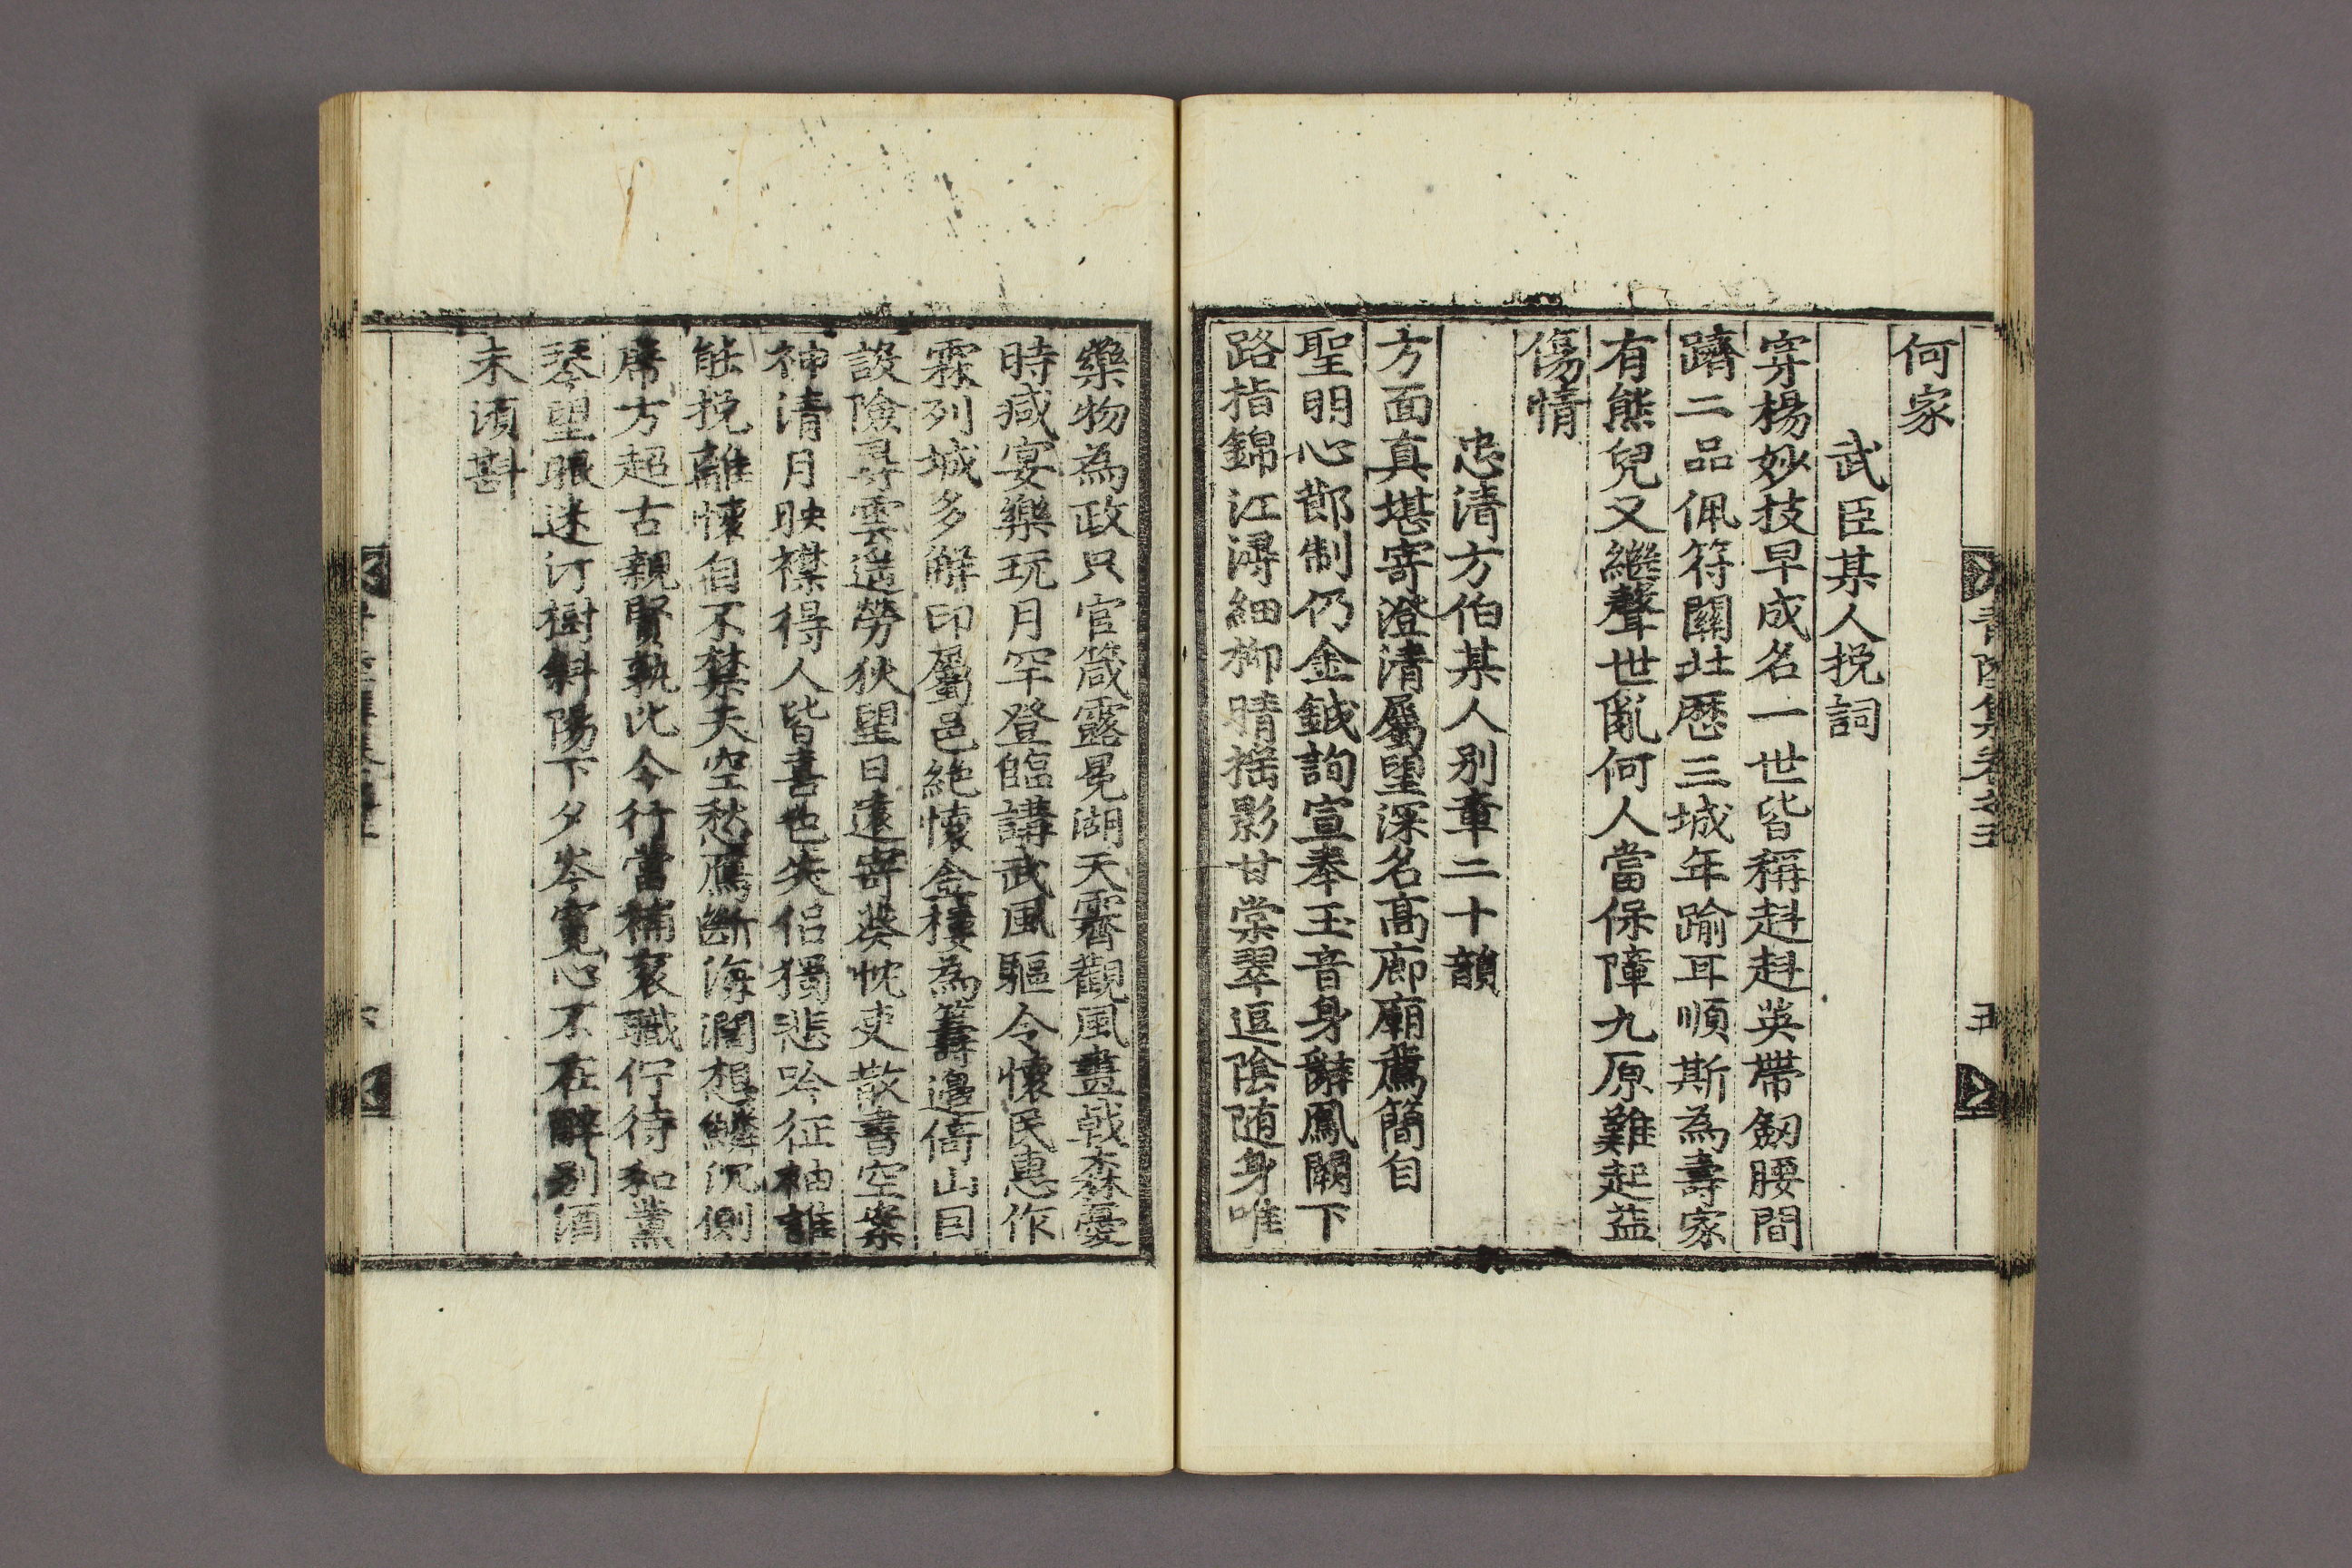 何家
武臣某人挽詞
穿楊妙技早成名一世皆稱赳赳英帶劒腰間
躋二品佩符關北歷三城年踰耳順斯為壽家
有熊兒又繼聲世亂何人當保障九原難起益
傷情
忠清方伯某人别章二十韻
方面真堪寄澄清屬望深名高廊廟薦簡自
聖明心節制仍金鉞詢宣奉玉音身辭鳳闕下
路指錦江潯細柳晴揺影甘棠翠逗陰随身唯
藥物為政只官箴露冕湖天霽觀風畫戟森憂
時減宴樂玩月罕登臨講武風驅令懷民惠作
霖列城多解印屬邑絶懷金樓為籌邊倚山因
設險尋雲遥勞狄望日遠寄葵忱吏散書空案
神清月映襟得人皆喜色失侣獨悲吟征袖誰
能挽離懷自不禁天空愁鴈斷海濶想鱗沉側
席方超古親賢孰比今行當補衮職佇待和薰
琴望眼迷汀樹斜陽下夕岑寛心不在醉别酒
未湏斟